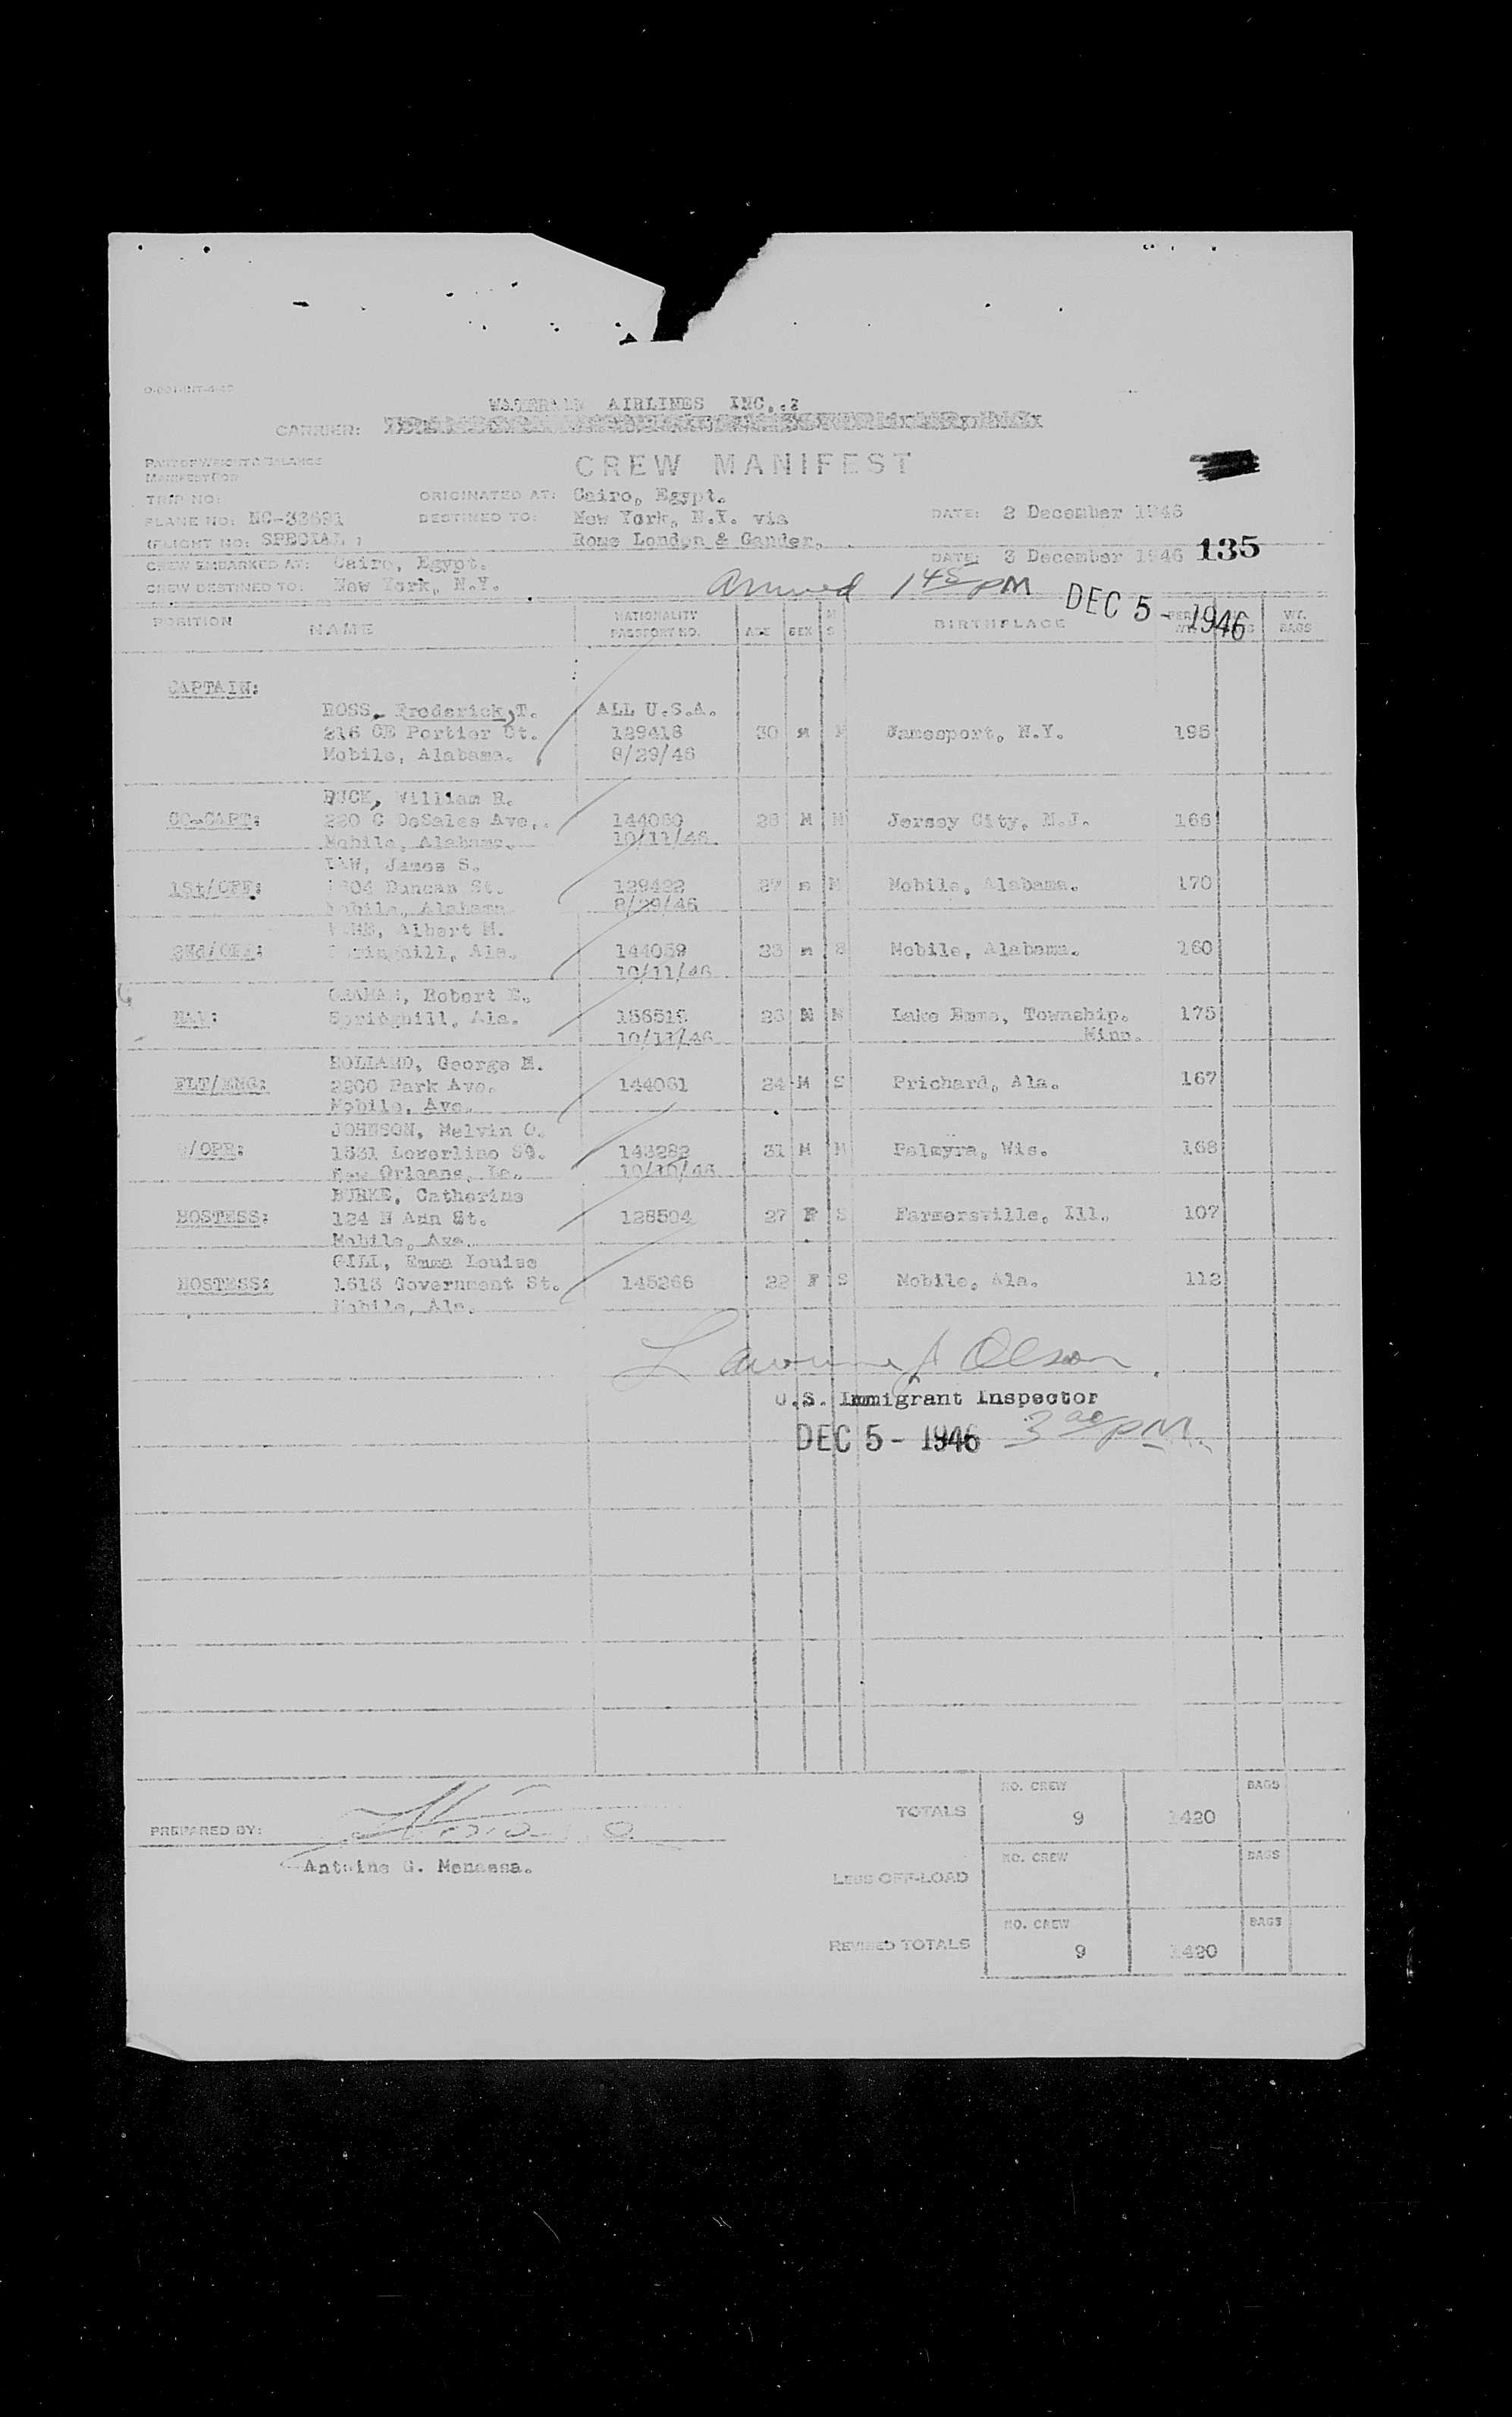 AIRLINES INC.
CARRIER:
CREW MANIFEST
TRIP NO:
ORIGINATED AT: Cairo, Egypt.
PLANE NO:
DESTINED TO: New York, N.Y. via
DATE: 2 December 1946
(FLIGHT NO: SPECIAL )
Rome London & Gander.
CREW EMBARKED AT: Cairo, Egypt.
DATE: 3 December 1946 135
CREW DESTINED TO: New York, N.Y.
Arrived 1 45 PM DEC 5 - 1946
POSITION NAME NATIONALITY PASSPORT NO. AGE SEX M S BIRTHPLACE WT. BAGS
CAPTAIN:
ROSS, Frederick, T. ALL U.S.A.
216 Portier Ct. 129418 30 M Jamesport, N.Y. 195
Mobile, Alabama. 8/29/46
BUCK, William R.
CO-CAPT: 220 C DeSales Ave,. 144060 M M Jersey City, N.J. 166
Mobile, Alabama. 10/11/46.
LAW, James S.
1St/OFF: Duncan St. 129422 27 m M Mobile, Alabama. 170
Mobile, Alabama 8/29/46
Albert M.
2Nd/OFF: Springhill, Ala. 144059 m S Mobile, Alabama. 160
10/11/46
GRAHAM, Robert E.
NAV: Springhill, Ala. M M Lake Emma, Township. 175
10/11/46 Minn.
HOLLAND, George M.
FLT/ENG: 2200 Park Ave. 144061 24 M S Prichard, Ala. 167
Mobile, Ave.
JOHNSON, Melvin O.
/OPR: 143282 31 M M Palmyra, Wis. 168
New Orleans, La. 10/10/46
BURKE, Catherine
HOSTESS: 124 N Ann St. 128504 27 F S Farmersville, Ill. 107
Mobile,
GILL, Emma Louise
HOSTESS: 1613 Government St. 145266 22 F S Mobile, Ala. 112
Mobile, Ala.
Olson
U.S. Immigrant Inspector
DEC 5 - 1946 3 PM.
NO. CREW BAGS
TOTALS 9 1420
PREPARED BY:
NO. CREW BAGS
Antoine G. Menassa.
LESS OFF-LOAD
NO. CREW BAGS
REVISED TOTALS 9 1420